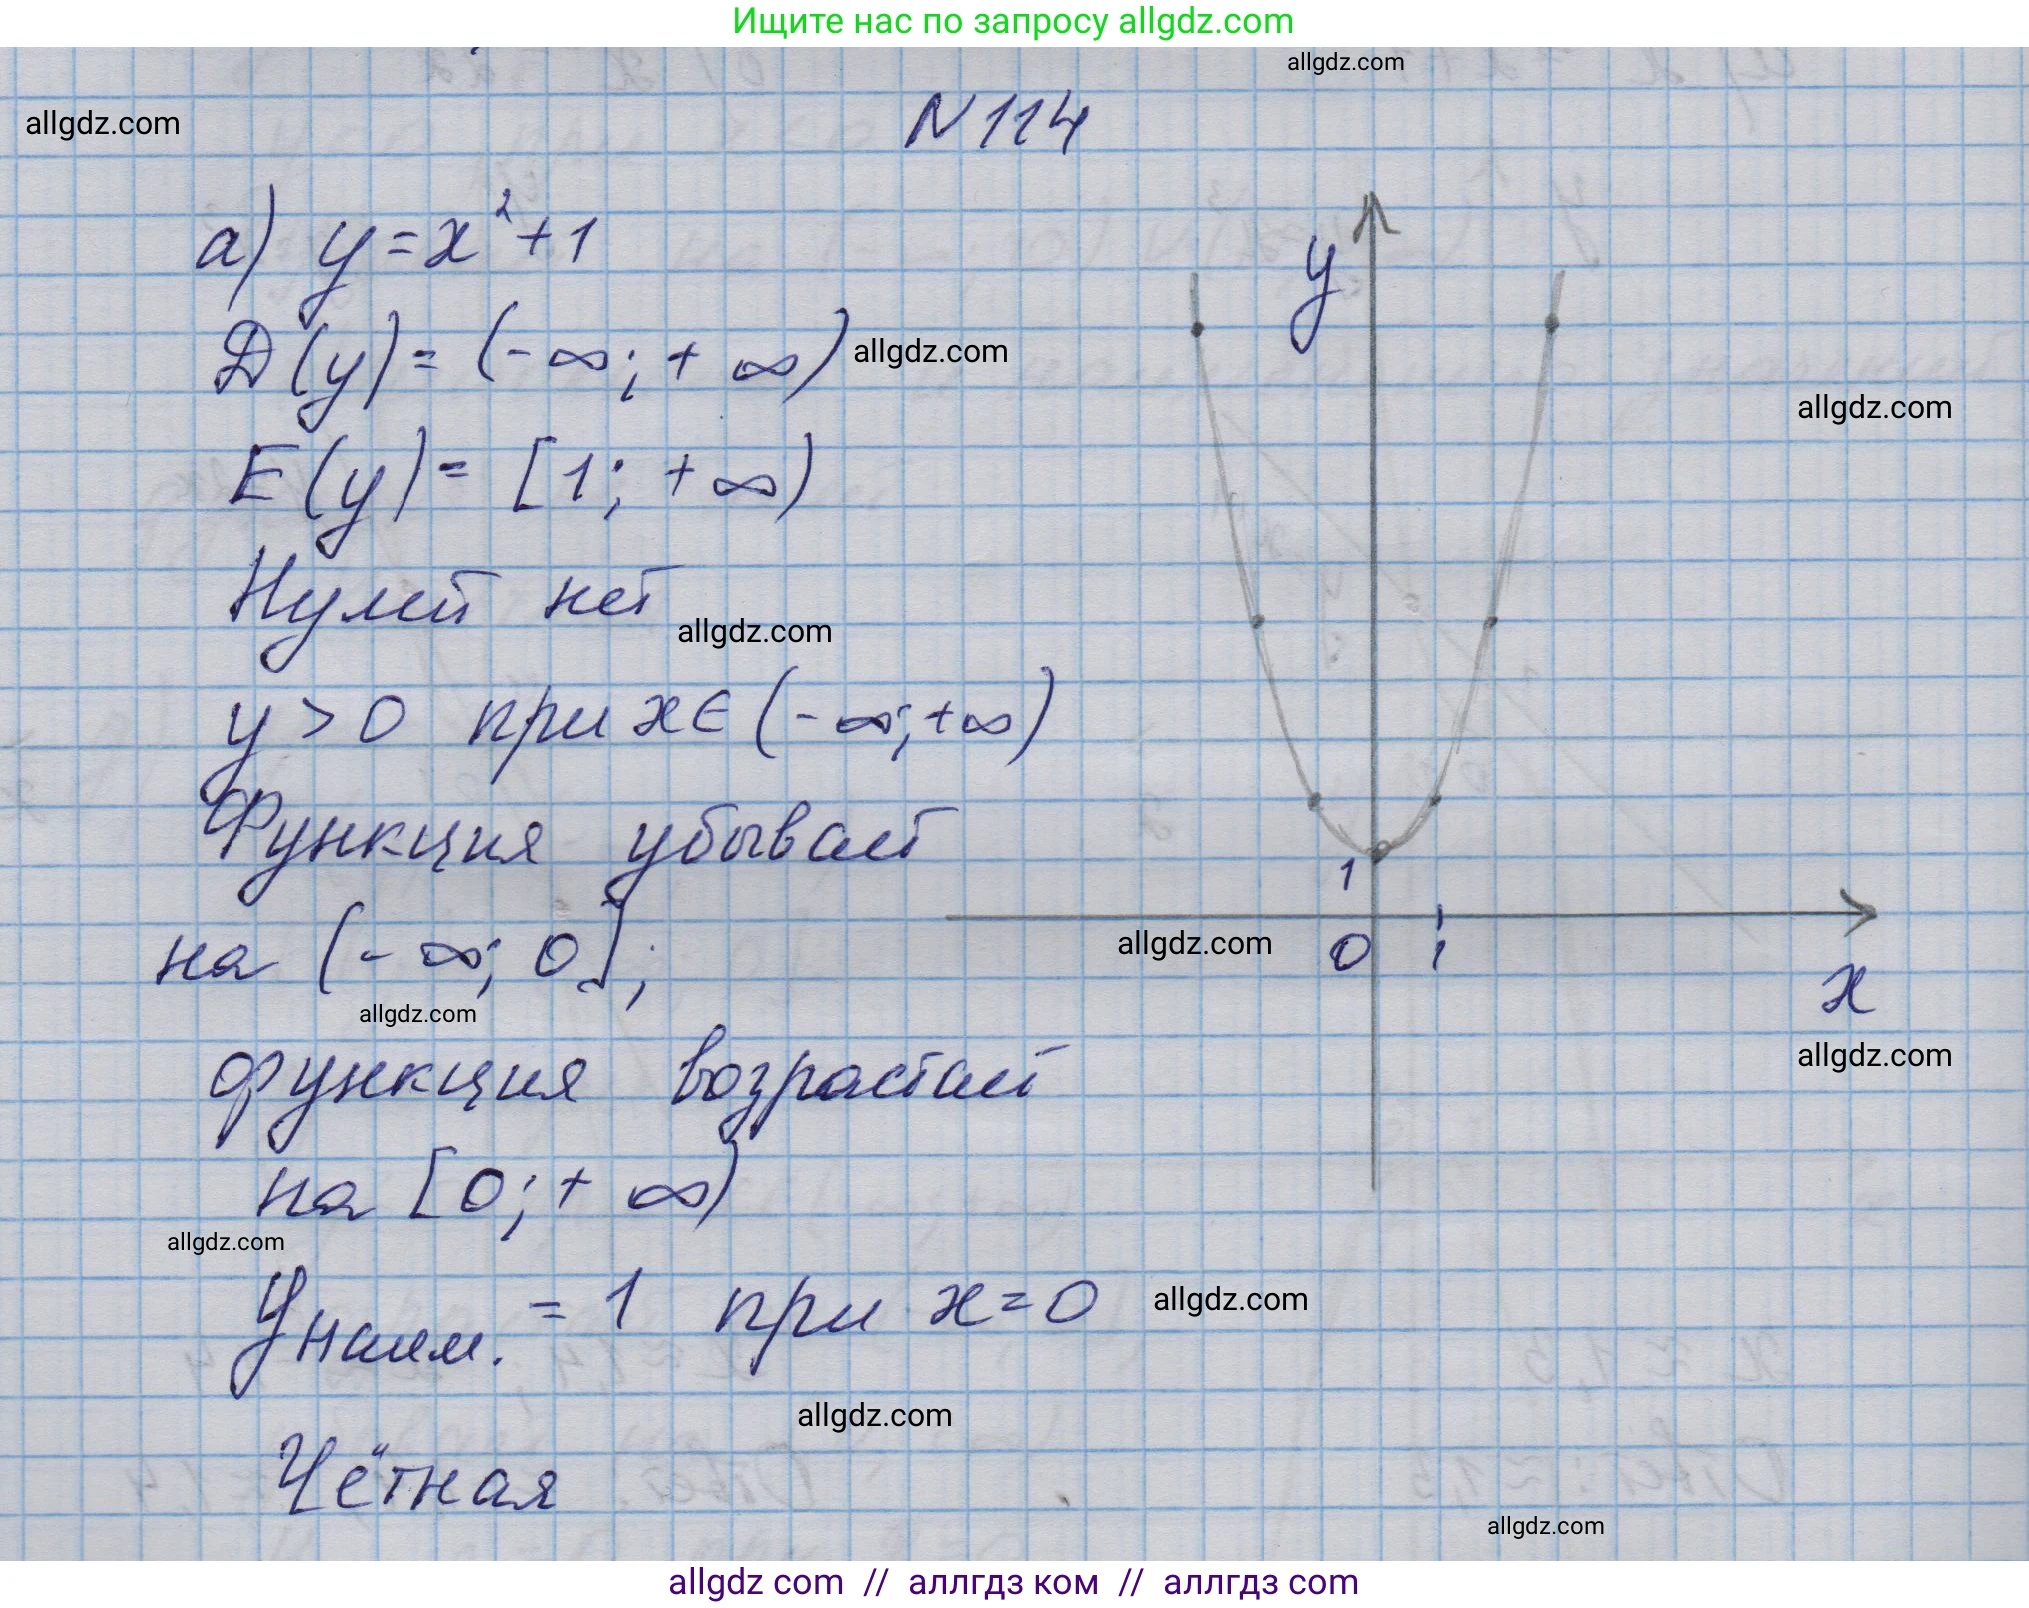 Ищите нас по запросу allgdz.com
allgdz.com
allgdz.com
N 114
а) y = x² + 1
D(y) = (-∞; +∞)
allgdz.com
y
allgdz.com
E(y) = [1; +∞)
Нулей нет
allgdz.com
y > 0 при x ∈ (-∞; +∞)
Функция убывает
1
на (-∞; 0];
allgdz.com
0
1
x
allgdz.com
allgdz.com
функция возрастает
на [0; +∞)
allgdz.com
yнаим. = 1 при x = 0
allgdz.com
allgdz.com
Чётная
allgdz.com
allgdz com // аллгдз ком // аллгдз com